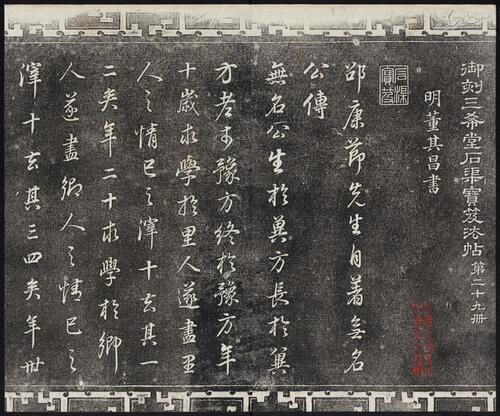 御刻三希堂石渠寶笈法帖 第二十九册
明董其昌書
石渠寶笈
邵康節先生自著無名
公傳
無名公生於冀方長於冀
方老於豫方終於豫方年
十歲求學於里人遂盡里
人之情已之滓十去其一
二矣年二十求學於鄉
人遂盡鄉人之情已之
滓十去其三四矣年卅